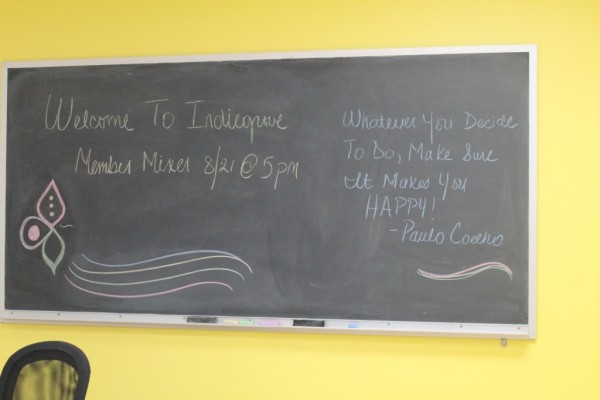 Welcome To Indiegrove
Member Mixer 8/21 @ 5pm
Whatever You Decide
To Do, Make Sure
It Makes You
HAPPY!
- Paulo Coelho